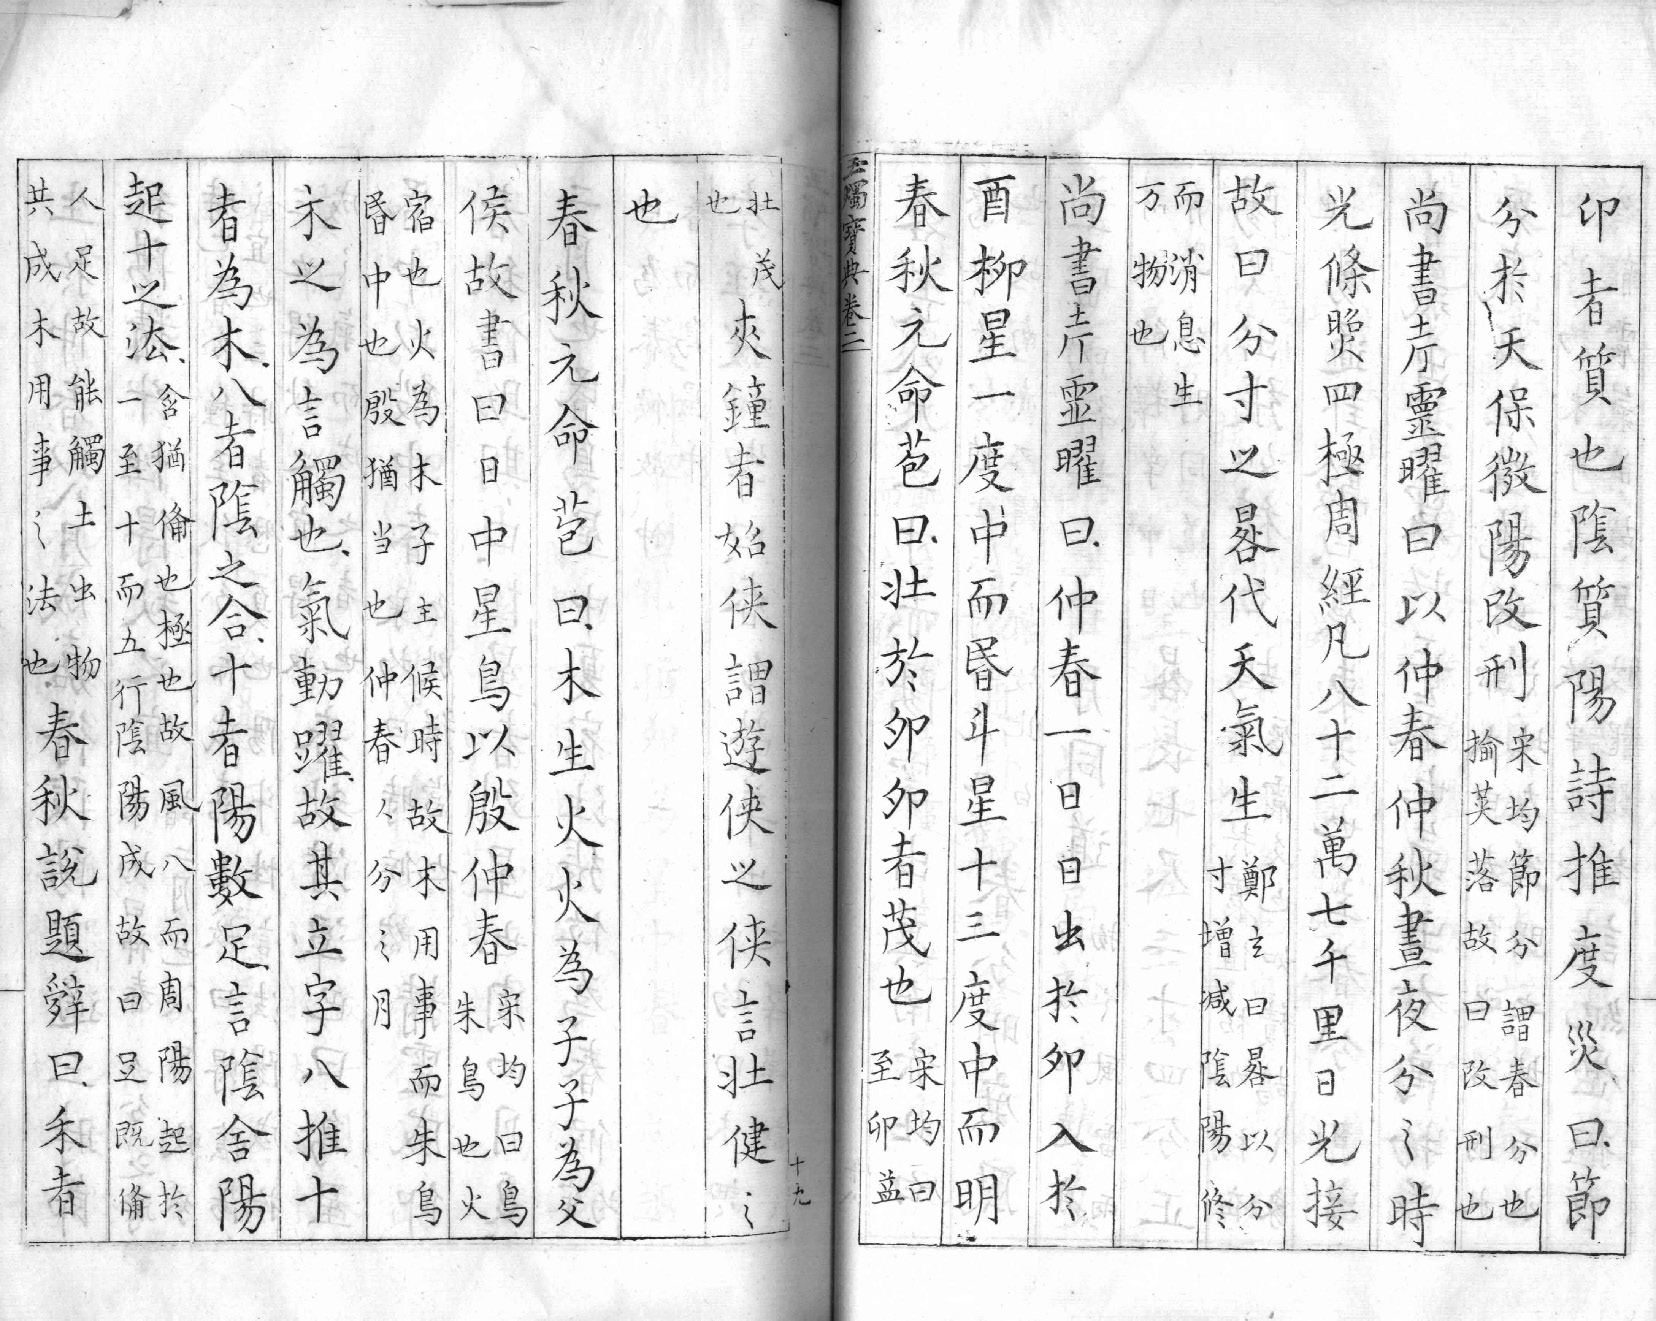 卯者質也陰質陽詩推度災曰節
分於天保微陽改刑宋均節分謂春分也
揄莢落故曰改刑也
尚書考靈曜曰以仲春仲秋晝夜分之時
光條照四極周經凡八十二萬七千里日光接
故曰分寸之晷代天氣生鄭玄曰晷以分
寸增減陰陽修
而消息生
万物也
尚書考靈曜曰仲春一日日出於卯入於
酉柳星一度中而昏斗星十三度中而明
春秋元命苞曰壯於卯卯者茂也宋均曰
至卯益
玉燭寶典卷二
十九
壯茂
也
夾鐘者始俠謂遊俠之俠言壯健之
也
春秋元命苞曰木生火火為子子為父
侯故書曰日中星鳥以殷仲春宋均曰鳥
朱鳥也火
宿也火為木子主候時故木用事而朱鳥
昏中也殷猶当也仲春々分之月
木之為言觸也氣動躍故其立字八推十
者為木八者陰之合十者陽數足言陰含陽
起十之法含猶俻也極也故風八而周陽起於
一至十而五行陰陽成故曰足既俻
人足故能觸土出物
共成木用事之法也
春秋說題辭曰禾者